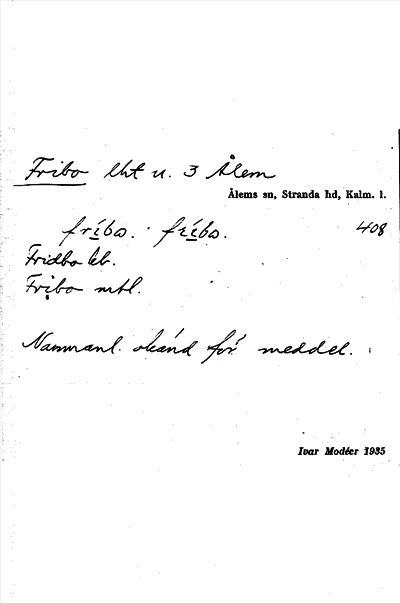 Fribo lht u. 3 Ålem
Ålems sn, Stranda hd, Kalm. l.
fríbo. fríbo. 408
Fridbo kb.
Fribo mtl.
Namnanl. okänd för meddel.
Ivar Modéer 1935